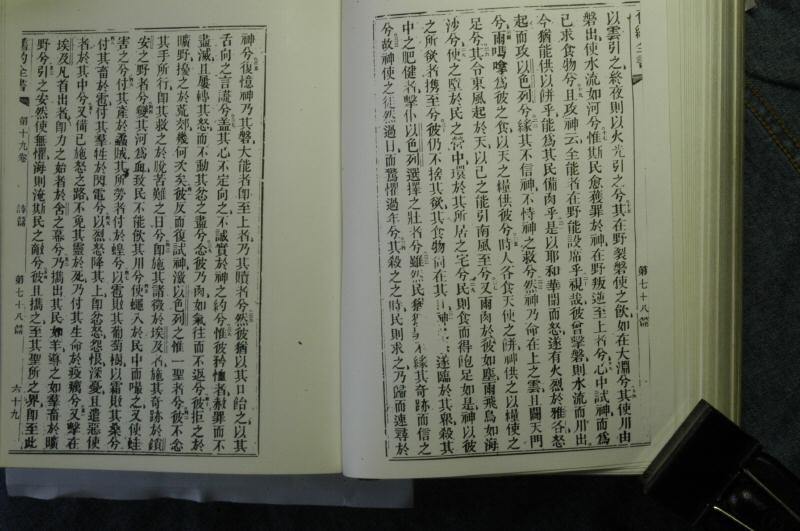 舊約全書
第七十八篇
以雲引之終夜則以火光引之兮其在野裂磐使之飲如在大淵兮其使川由
磐出使水流如河兮惟斯民愈獲罪於神在野叛逆至上者兮心中試神而爲
己求食物兮且攻神云全能者在野能設席乎視哉彼曾擊磐則水流而川出
今猶能供以餅乎能爲其民備肉乎是以耶和華聞而怒遂有火烈於雅各怒
起而攻以色列兮緣其不信神不恃神之救兮然神乃命在上之雲且闢天門
兮雨嗎嗱爲彼之食以天之糧供彼兮時人各食天使之餅神供之以糧使之
足兮其令東風起於天以己之能引南風至兮又雨肉於彼如塵雨飛鳥如海
沙兮使之墮於民之營中環於其所居之宅兮民則食而得飽足如是神以彼
之所欲者攜至兮彼仍不捨其欲其食物尚在其口神之遂臨於其邪殺其
中之肥健者擊仆以色列選擇之壯者兮雖然民猶不緣其奇跡而信之
兮故神使之徒然過日而驚懼過年兮其殺之之時民則求之乃歸而連尋於
神兮復憶神乃其磐大能者卽至上者乃其贖者兮然彼猶以其口飴之以其
舌向之言謊兮蓋其心不定向之不誠實於神之約兮惟彼矜恤者赦罪而不
盡滅且屢轉其怒而不動其忿之盡兮念彼乃肉如氣往而不返兮彼拒之於
曠野擾之於荒郊幾何次矣彼反而復試神激以色列之惟一聖者兮彼不念
其手所行卽其救之於脫苦難之日兮卽施其諸徵於埃及者施其奇跡於鎖
安之野者兮變其河爲血致民不能飲其川兮使蠅入於民中而嘬之又使蛙
害之兮付其產於蟊賊其所勞者付於蝗兮以雹敗其葡萄樹以霜敗其桑兮
付其畜於雹付其羣牲於閃電兮以烈怒降其上卽忿怒怨恨深憂且遣惡使
者於其中兮又備已施怒之路不免其靈於死乃付其生命於疫癘兮又擊在
埃及凡首出者卽力之始者於含之幕兮乃攜出其民如羊導之如羣畜於曠
野兮引之安然使無懼海則淹斯民之敵兮彼且攜之至其聖所之界卽至此
舊約全書
第十九卷
詩篇
第七十八篇
六十九